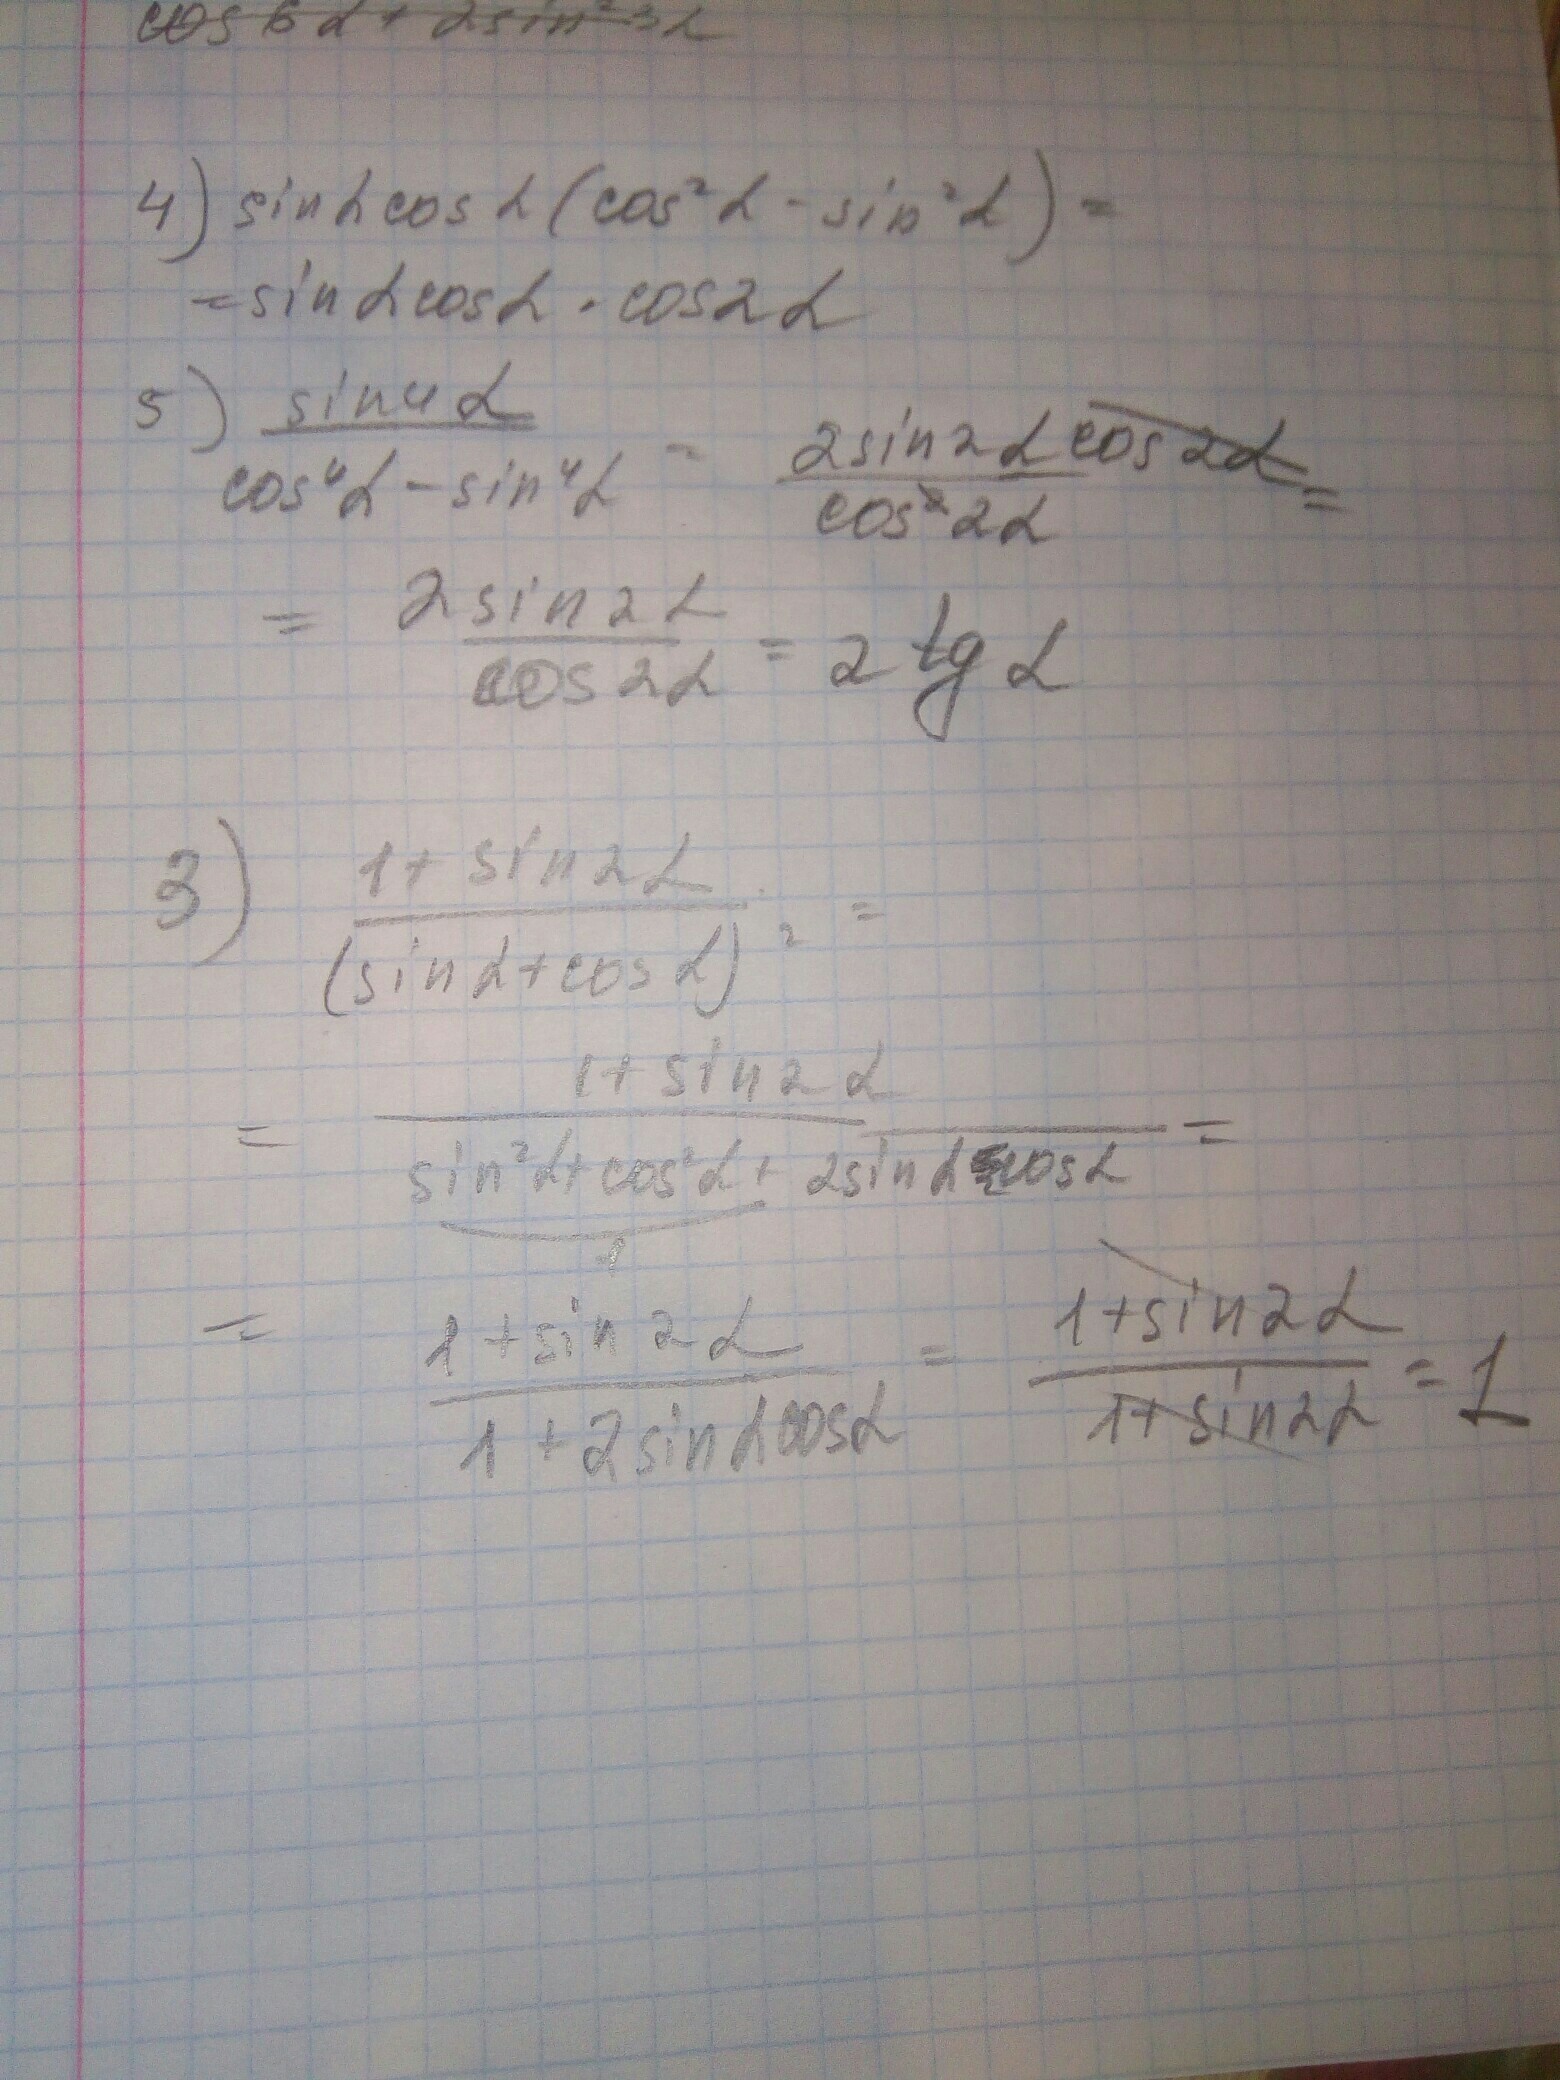 cos6α + 2sin²3α
4) sinα cosα (cos²α - sin²α) =
= sinα cosα · cos2α
5) sin4α / cos⁴α - sin⁴α = 2sin2α cos2α / cos²2α =
= 2sin2α / cos2α = 2 tg α
3) 1 + sin2α / (sinα + cosα)² =
= 1 + sin2α / sin²α + cos²α + 2sinα cosα =
1
= 1 + sin2α / 1 + 2sinα cosα = 1 + sin2α / 1 + sin2α = 1